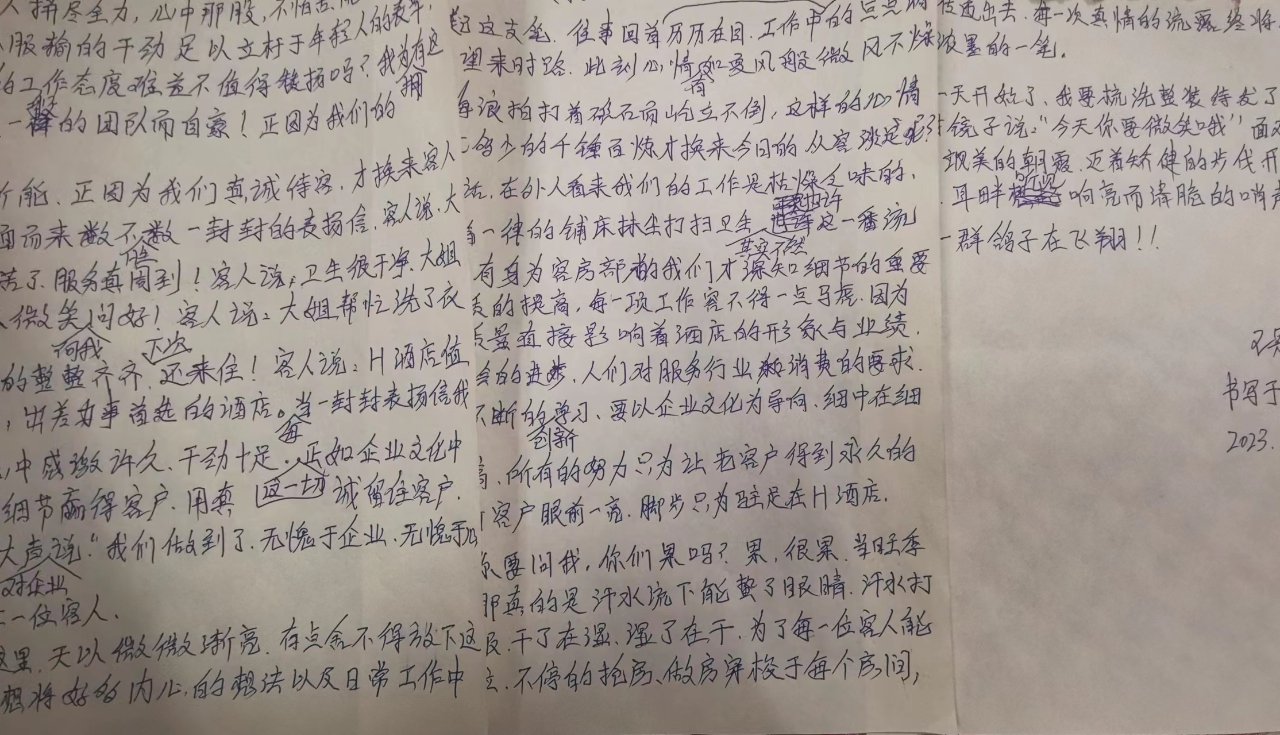 人拼尽全力,心中那股,不怕苦
服输的干劲足以立标于年轻人的
的工作态度难道不值得赞扬吗?我为有这
拥
一群的团队而自豪!正因为我们的
能.正因为我们真诚待客,才换来客人
面而来数不数一封封的表扬信.客人说,大
苦了.服务真周到!客人说,卫生很干净.大姐
微笑问好!客人说:大姐帮忙洗了衣
向我 下次
的整整齐齐.还来住!客人说:H酒店值
,出差办事首选的酒店。当一封封表扬信我
每
中感激许久.干劲十足.正如企业文化中
细节赢得客户.用真诚留住客户.
这一切
大声说"我们做到了.无愧于企业.无愧于
对企业
一位客人.
这里.天以微微渐亮.有点舍不得放下这
想将好多内心的想法以及日常工作中
这支笔.往事回首历历在目.工作中的点点
来时路.此刻心情如夏风般微风不燥
海浪拍打着礁石而屹立不倒,这样的心情
多少的千锤百炼才换来今日的从容淡定呢?
话.在外人看来我们的工作是枯燥乏味的,
或许
一律的铺床抹尘打扫卫生 这一番说
其实不然
有身为客房部的我们才深知细节的重要
的提高,每一项工作容不得一点马虎.因为
质量直接影响着酒店的形象与业绩.
的进步.人们对服务行业和消费的要求.
不断的学习、要以企业文化为导向.细中在细
创新
.所有的努力只为让老客户得到永久的
客户眼前一亮.脚步只为驻足在H酒店.
要问我,你们累吗?累,很累.当旺季
那真的是汗水流下能蛰了眼睛.汗水打
.干了在湿.湿了在干.为了每一位客人能
.不停的抢房、做房穿梭于每个房间,
出去.每一次真情的流露终将
浓墨的一笔.
一天开始了.我要梳洗整装待发了
镜子说:"今天你要微笑哦"面对
美的朝霞.迈着矫健的步伐开
听见
耳畔 响亮而清脆的哨声
一群鸽子在飞翔!!
书写于
2023.